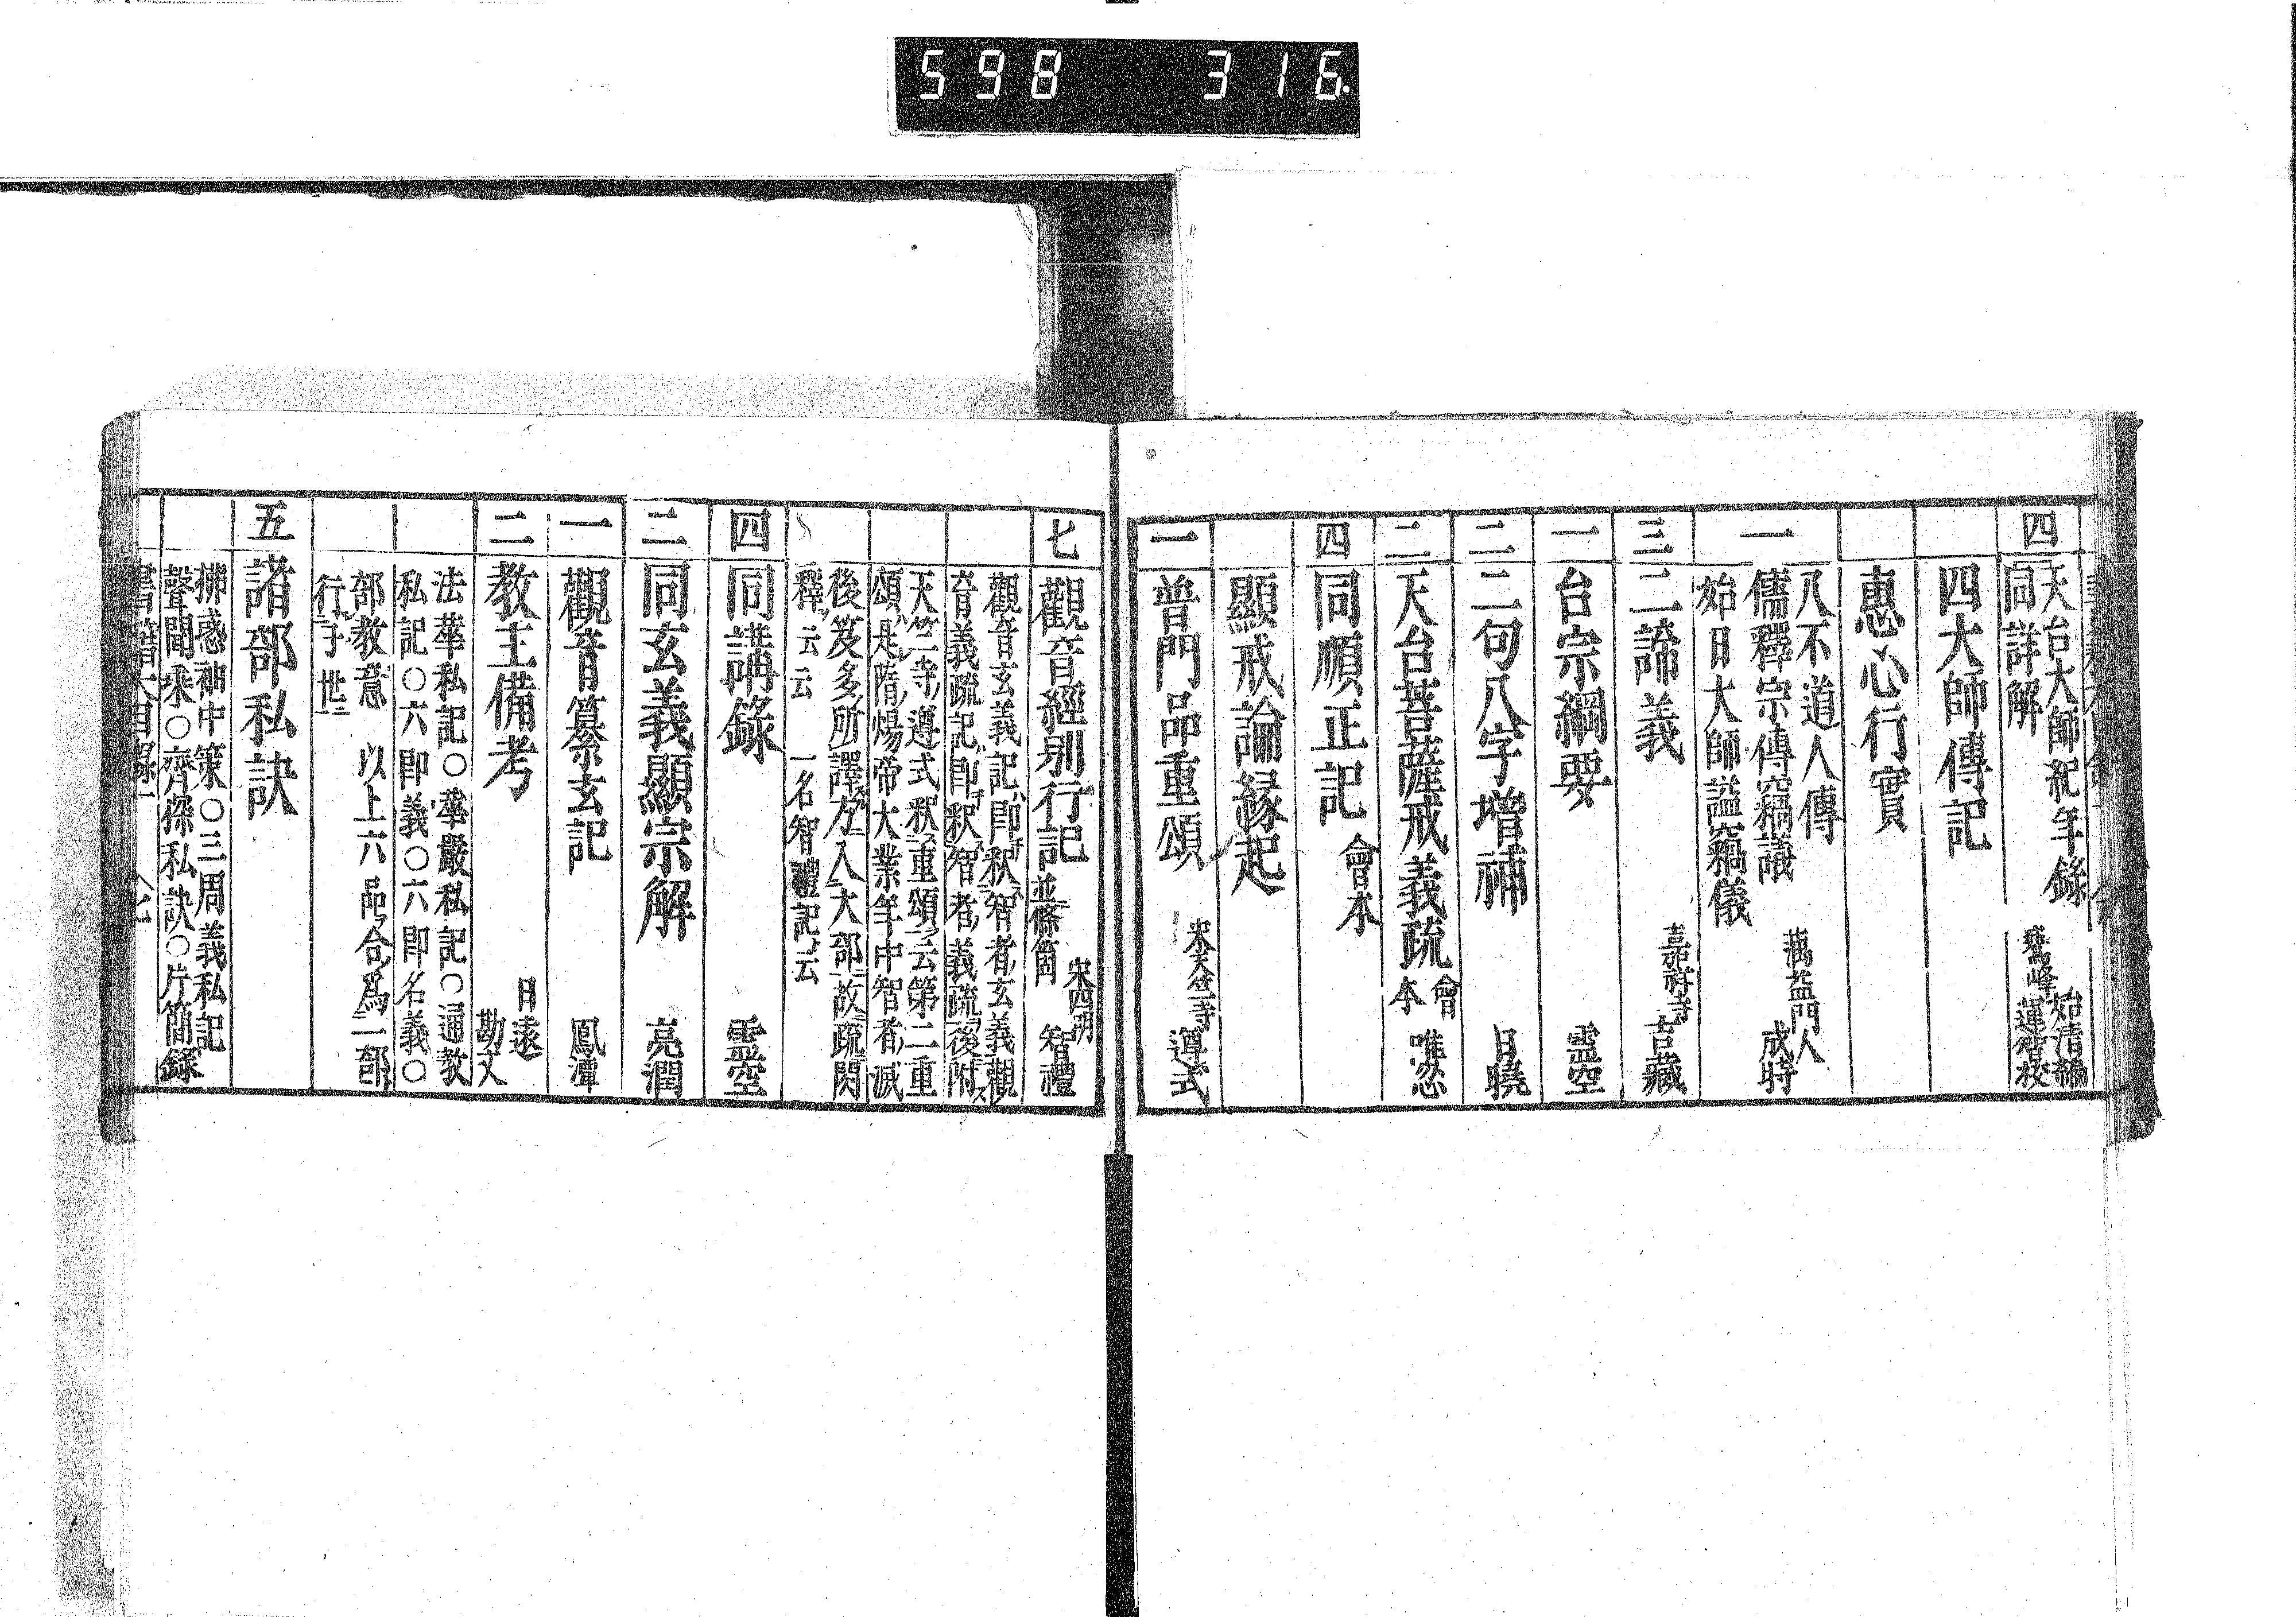 598 316
四 天台大師紀年録 始清編
同詳解 鷲峰 運智校
四大師傳記
惠心行實
一 八不道人傳
儒釋宗傳竊議 蕅益門人 成時
始日大師謚竊儀
三 二諦義 嘉祥寺 吉藏
一 台宗綱要 霊空
二 二句八字增補 日曉
二 天台菩薩戒義疏 會本 唯忍
四 同順正記 會本
顯戒論縁起
一 普門品重頌 宋天竺寺 遵式
七 觀音經別行記 並條箇 宋四明 智禮
觀音玄義記即釈智者玄義觀
音義疏記即釈智者義疏後附
天竺寺遵式釈重頌云第二重
頌是隋煬帝大業年中智者滅
後笈多所譯方入大部故疏闕
釋云云 一名智禮記云
四 同講錄 霊空
二 同玄義顯宗解 亮潤
一 觀音纂玄記 鳳潭
二 教主備考 日遠 勘文
法華私記〇華嚴私記〇通教
私記〇六即義〇六即名義〇
部教意 以上六品合爲一部
行于世
五 諸部私訣
拂惑袖中策〇三周義私記
聲聞乘〇齊探私訣〇片簡錄
書籍大目録一 八七